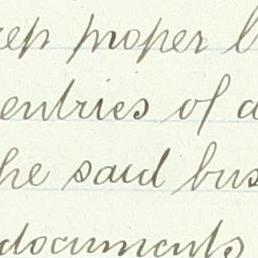 eep proper b
entries of a
he said bus
documents